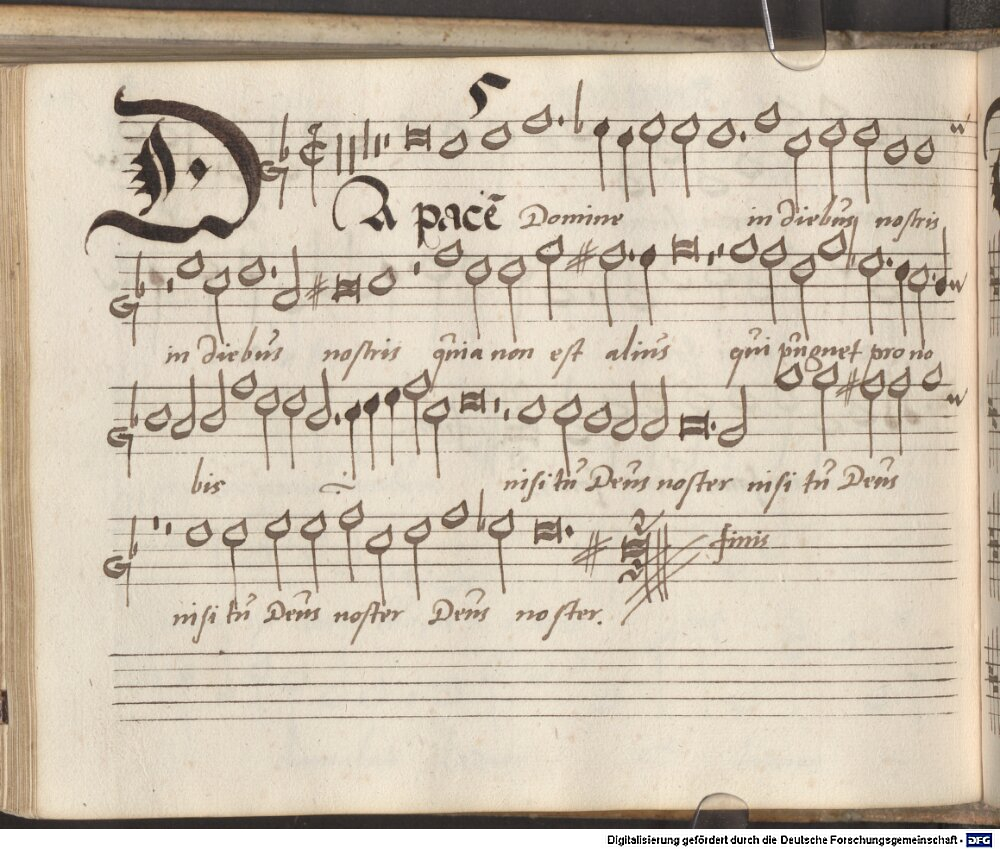 5
DA pacē Domine in diebus nostris
in diebus nostris quia non est alius qui pugnet pro no
bis ij nisi tu Deus noster nisi tu Deus
nisi tu Deus noster Deus noster.
finis
Digitalisierung gefördert durch die Deutsche Forschungsgemeinschaft - DFG